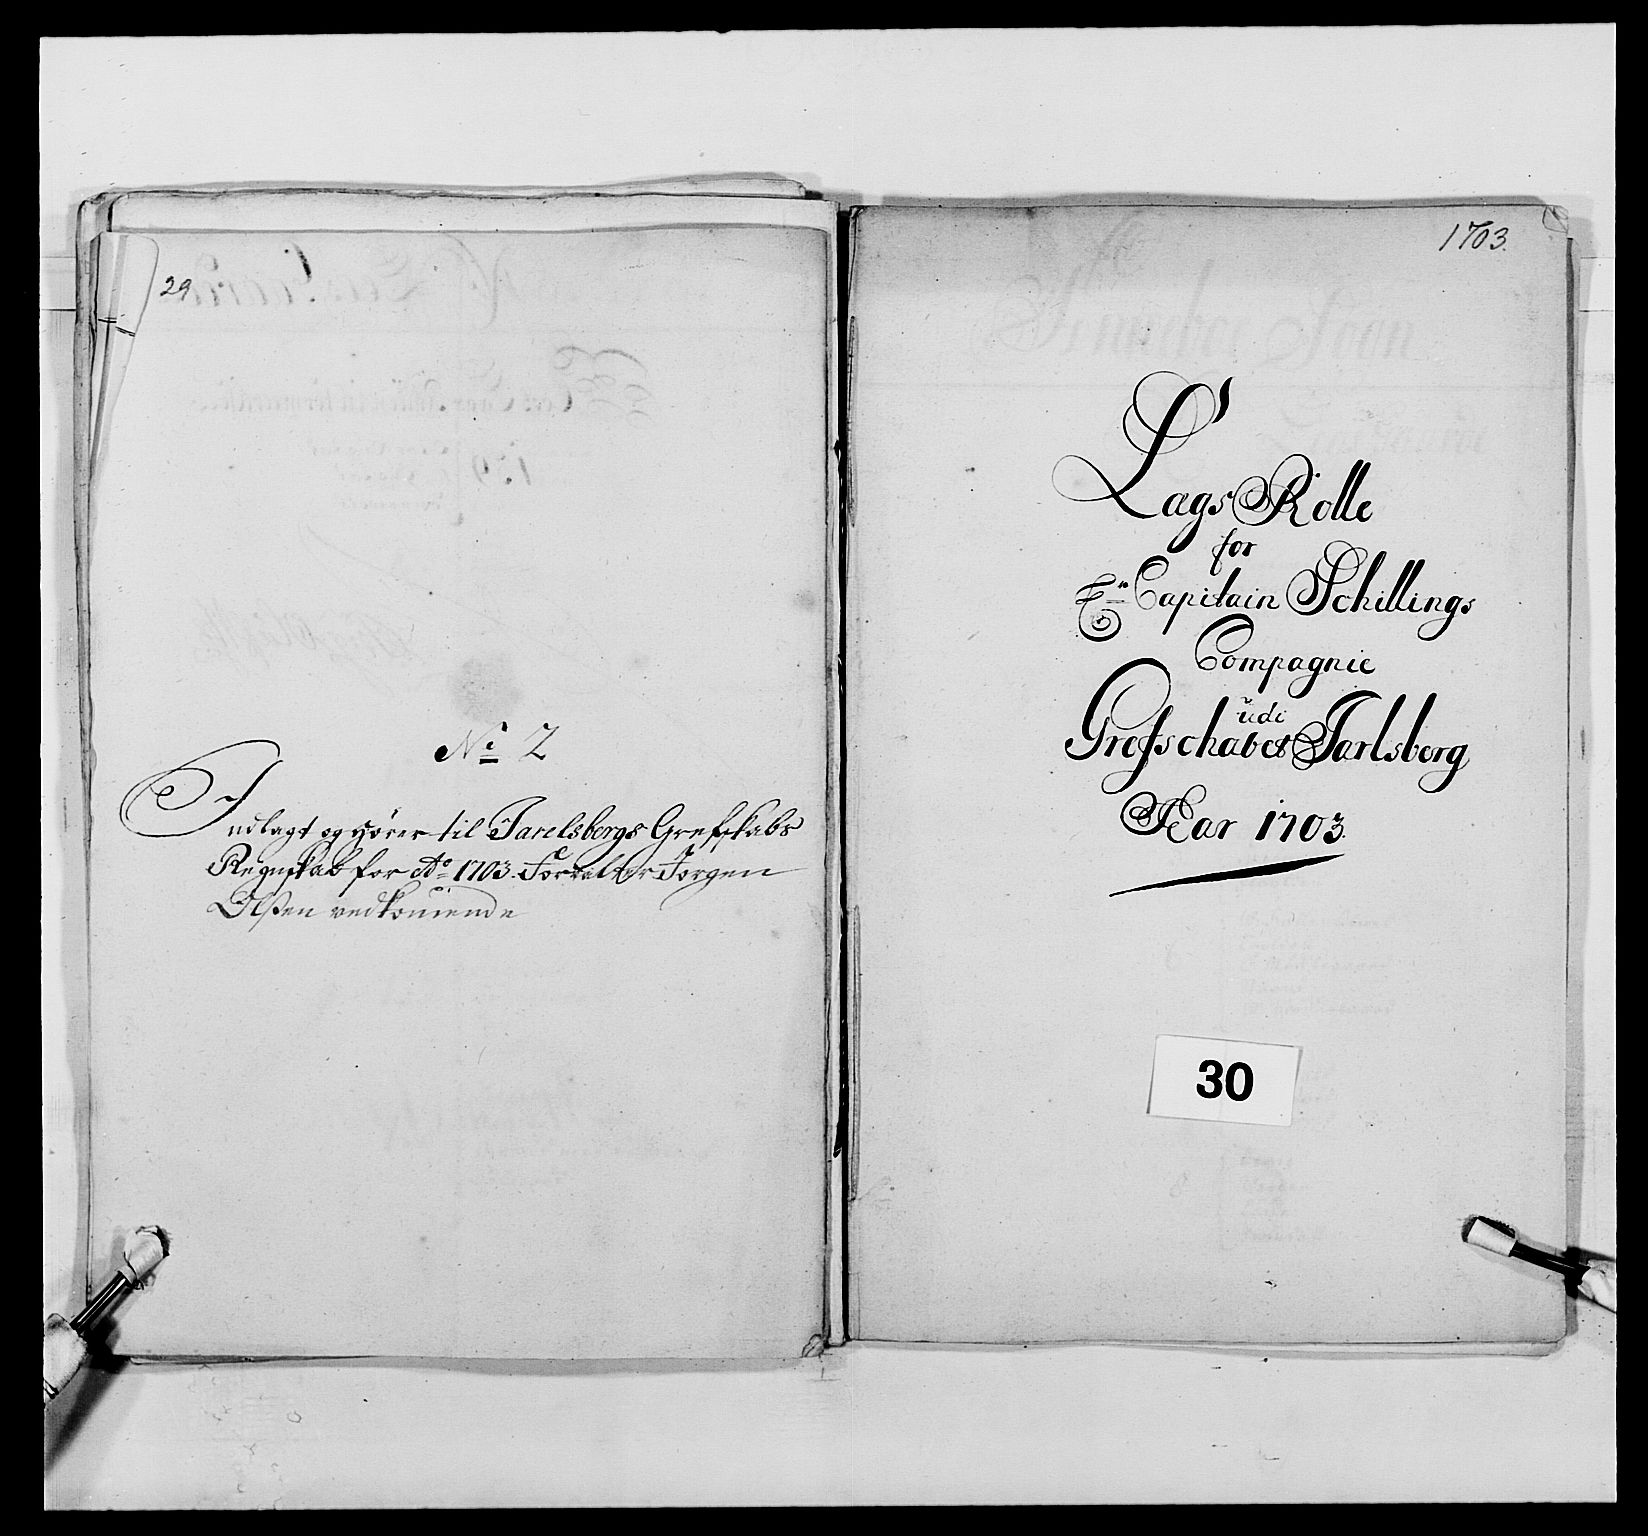 29
No 2
Indlagt og hörer til Jarelsbergs Grefskabs
Regnskab for Ao 1703. Forvalter Jørgen
Olsen vedkomende
1703.
Lags Rolle
for
Hr Capitain Schillings
Compagnie
udi
Grefschabet Jarlsberg
Aar 1703.
30